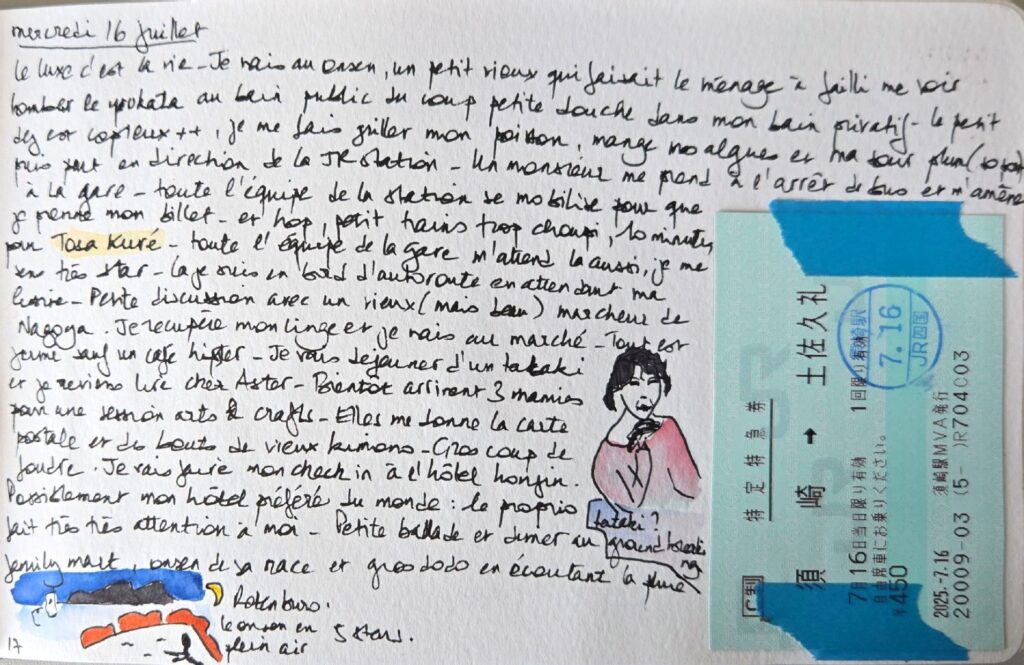 mercredi 16 juillet
Le luxe c'est la vie - Je vais au onsen, un petit vieux qui faisait le ménage à failli me voir
tomber le yukata au bain public du coup petite douche dans mon bain privatif - le petit
dej est copieux ++, je me fais griller mon poisson, mange nos algues et ma sour plum
puis part en direction de la JR station - Un monsieur me prend à l'arrêt de bus et m'amène
à la gare - toute l'équipe de la station se mobilise pour que
je prenne mon billet - et hop, petit trains trop choupi, 10 minutes
pour Tosa Kuré - toute l'équipe de la gare m'attend la aussi, je me
sens très star - la je suis en bord d'autoroute en attendant ma
- Petite discussion avec un vieux (mais beau) marcheur de
Nagoya. Je recupère mon linge et je vais au marché - Tout est
fermé sauf un café hipster - Je vais déjeuner d'un tataki
et je reviens lire chez Aster - Bientôt arrivent 3 mamies
pour une session arts & crafts - Elles me donne la carte
postale et des bouts de vieux kimono - Gros coup de
foudre. Je vais faire mon check in à l'hôtel honjin.
Possiblement mon hôtel préféré du monde : le proprio
fait très très attention à moi - Petite ballade et diner au
family mart, onsen de sa race et gros dodo en écoutant la pluie
tataki?
ground breaking
Rotenburo.
le onsen en 5 stars.
plein air
17
特定特急券
須崎 → 土佐久礼
7月16日当日限り有効 1回限り有効
自由席車にお乗りください。
¥450
C制
須崎駅
7.16
JR四国
2025.-7.16 須崎駅MVA発行
20009-03 (5- )R704C03